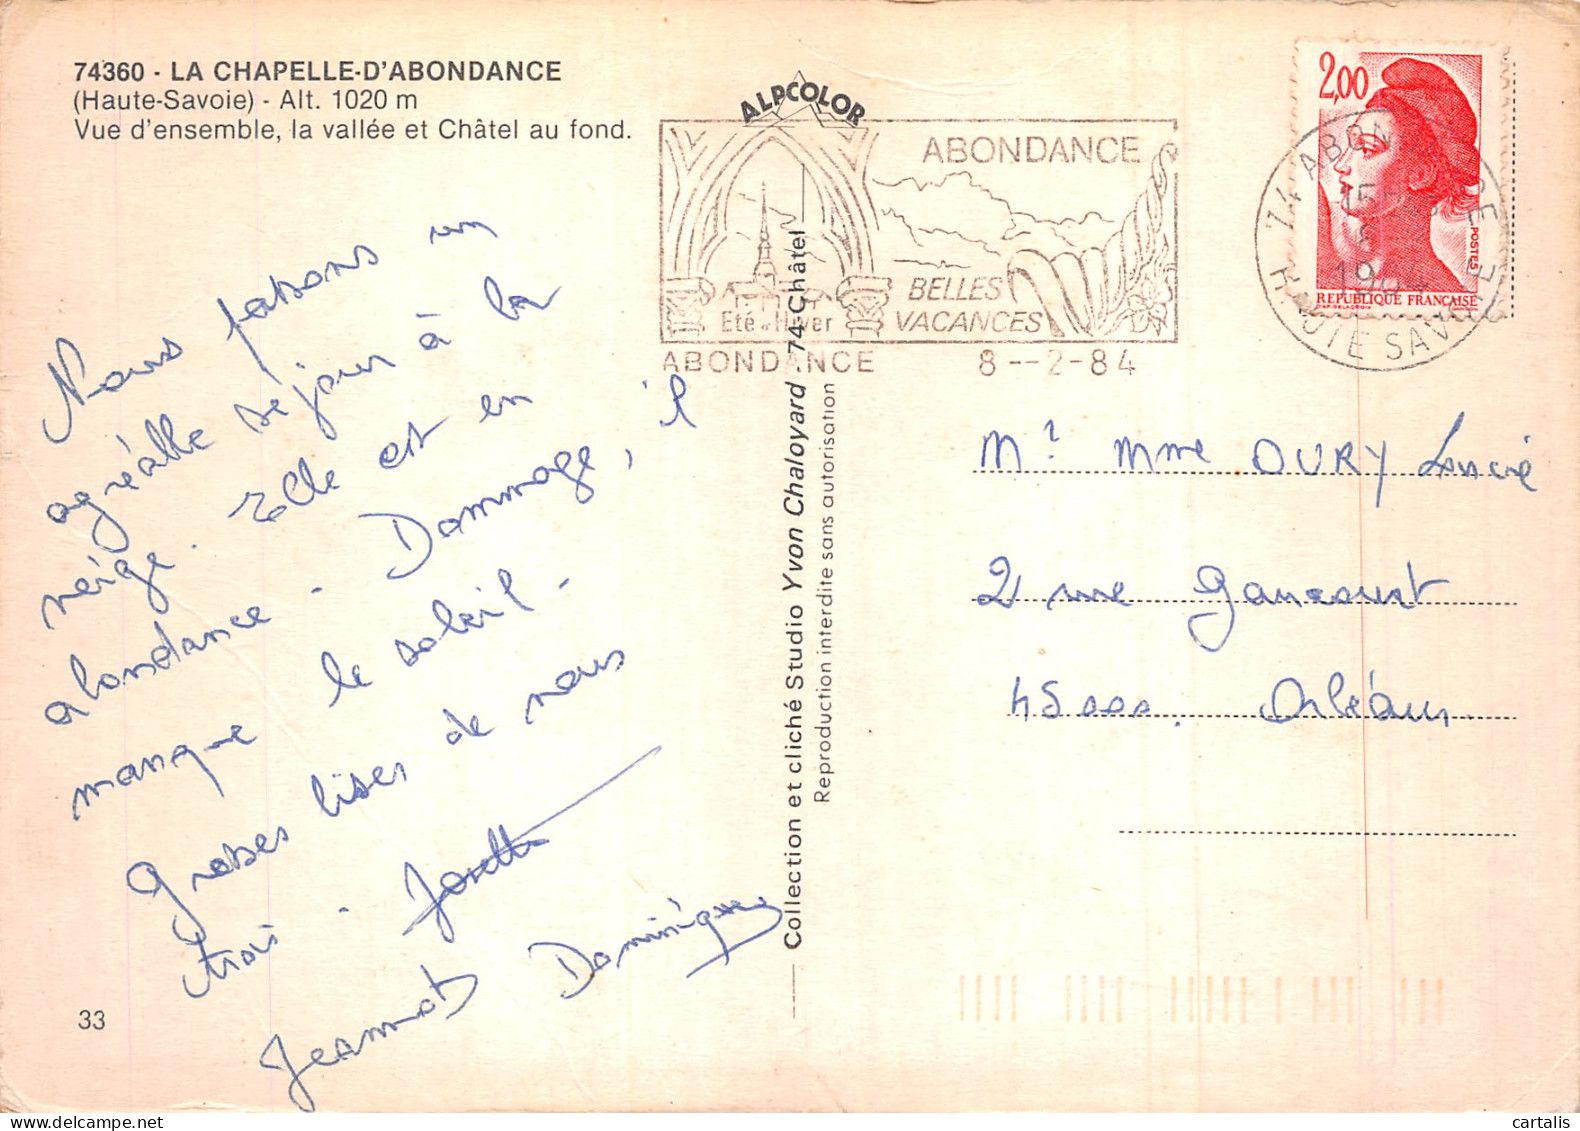 74360 - LA CHAPELLE-D'ABONDANCE
(Haute-Savoie) - Alt. 1020 m
Vue d'ensemble, la vallée et Châtel au fond.
Nous passons un
agréable séjour à la
neige. Elle est en
abondance. Dommage, il
manque le soleil.
Grosses bises de nous
trois. Josette
Jeannot Dominique
33
ALPCOLOR
Collection et cliché Studio Yvon Chaloyard . 74-Châtel
Reproduction interdite sans autorisation
ABONDANCE
BELLES
VACANCES
Eté et Hiver
ABONDANCE 8--2-84
2,00
POSTES
REPUBLIQUE FRANÇAISE
74 ABONDANCE
15
1984
HAUTE SAVOIE
Mr Mme OURY
2 rue
45000. Orléans
cartalis